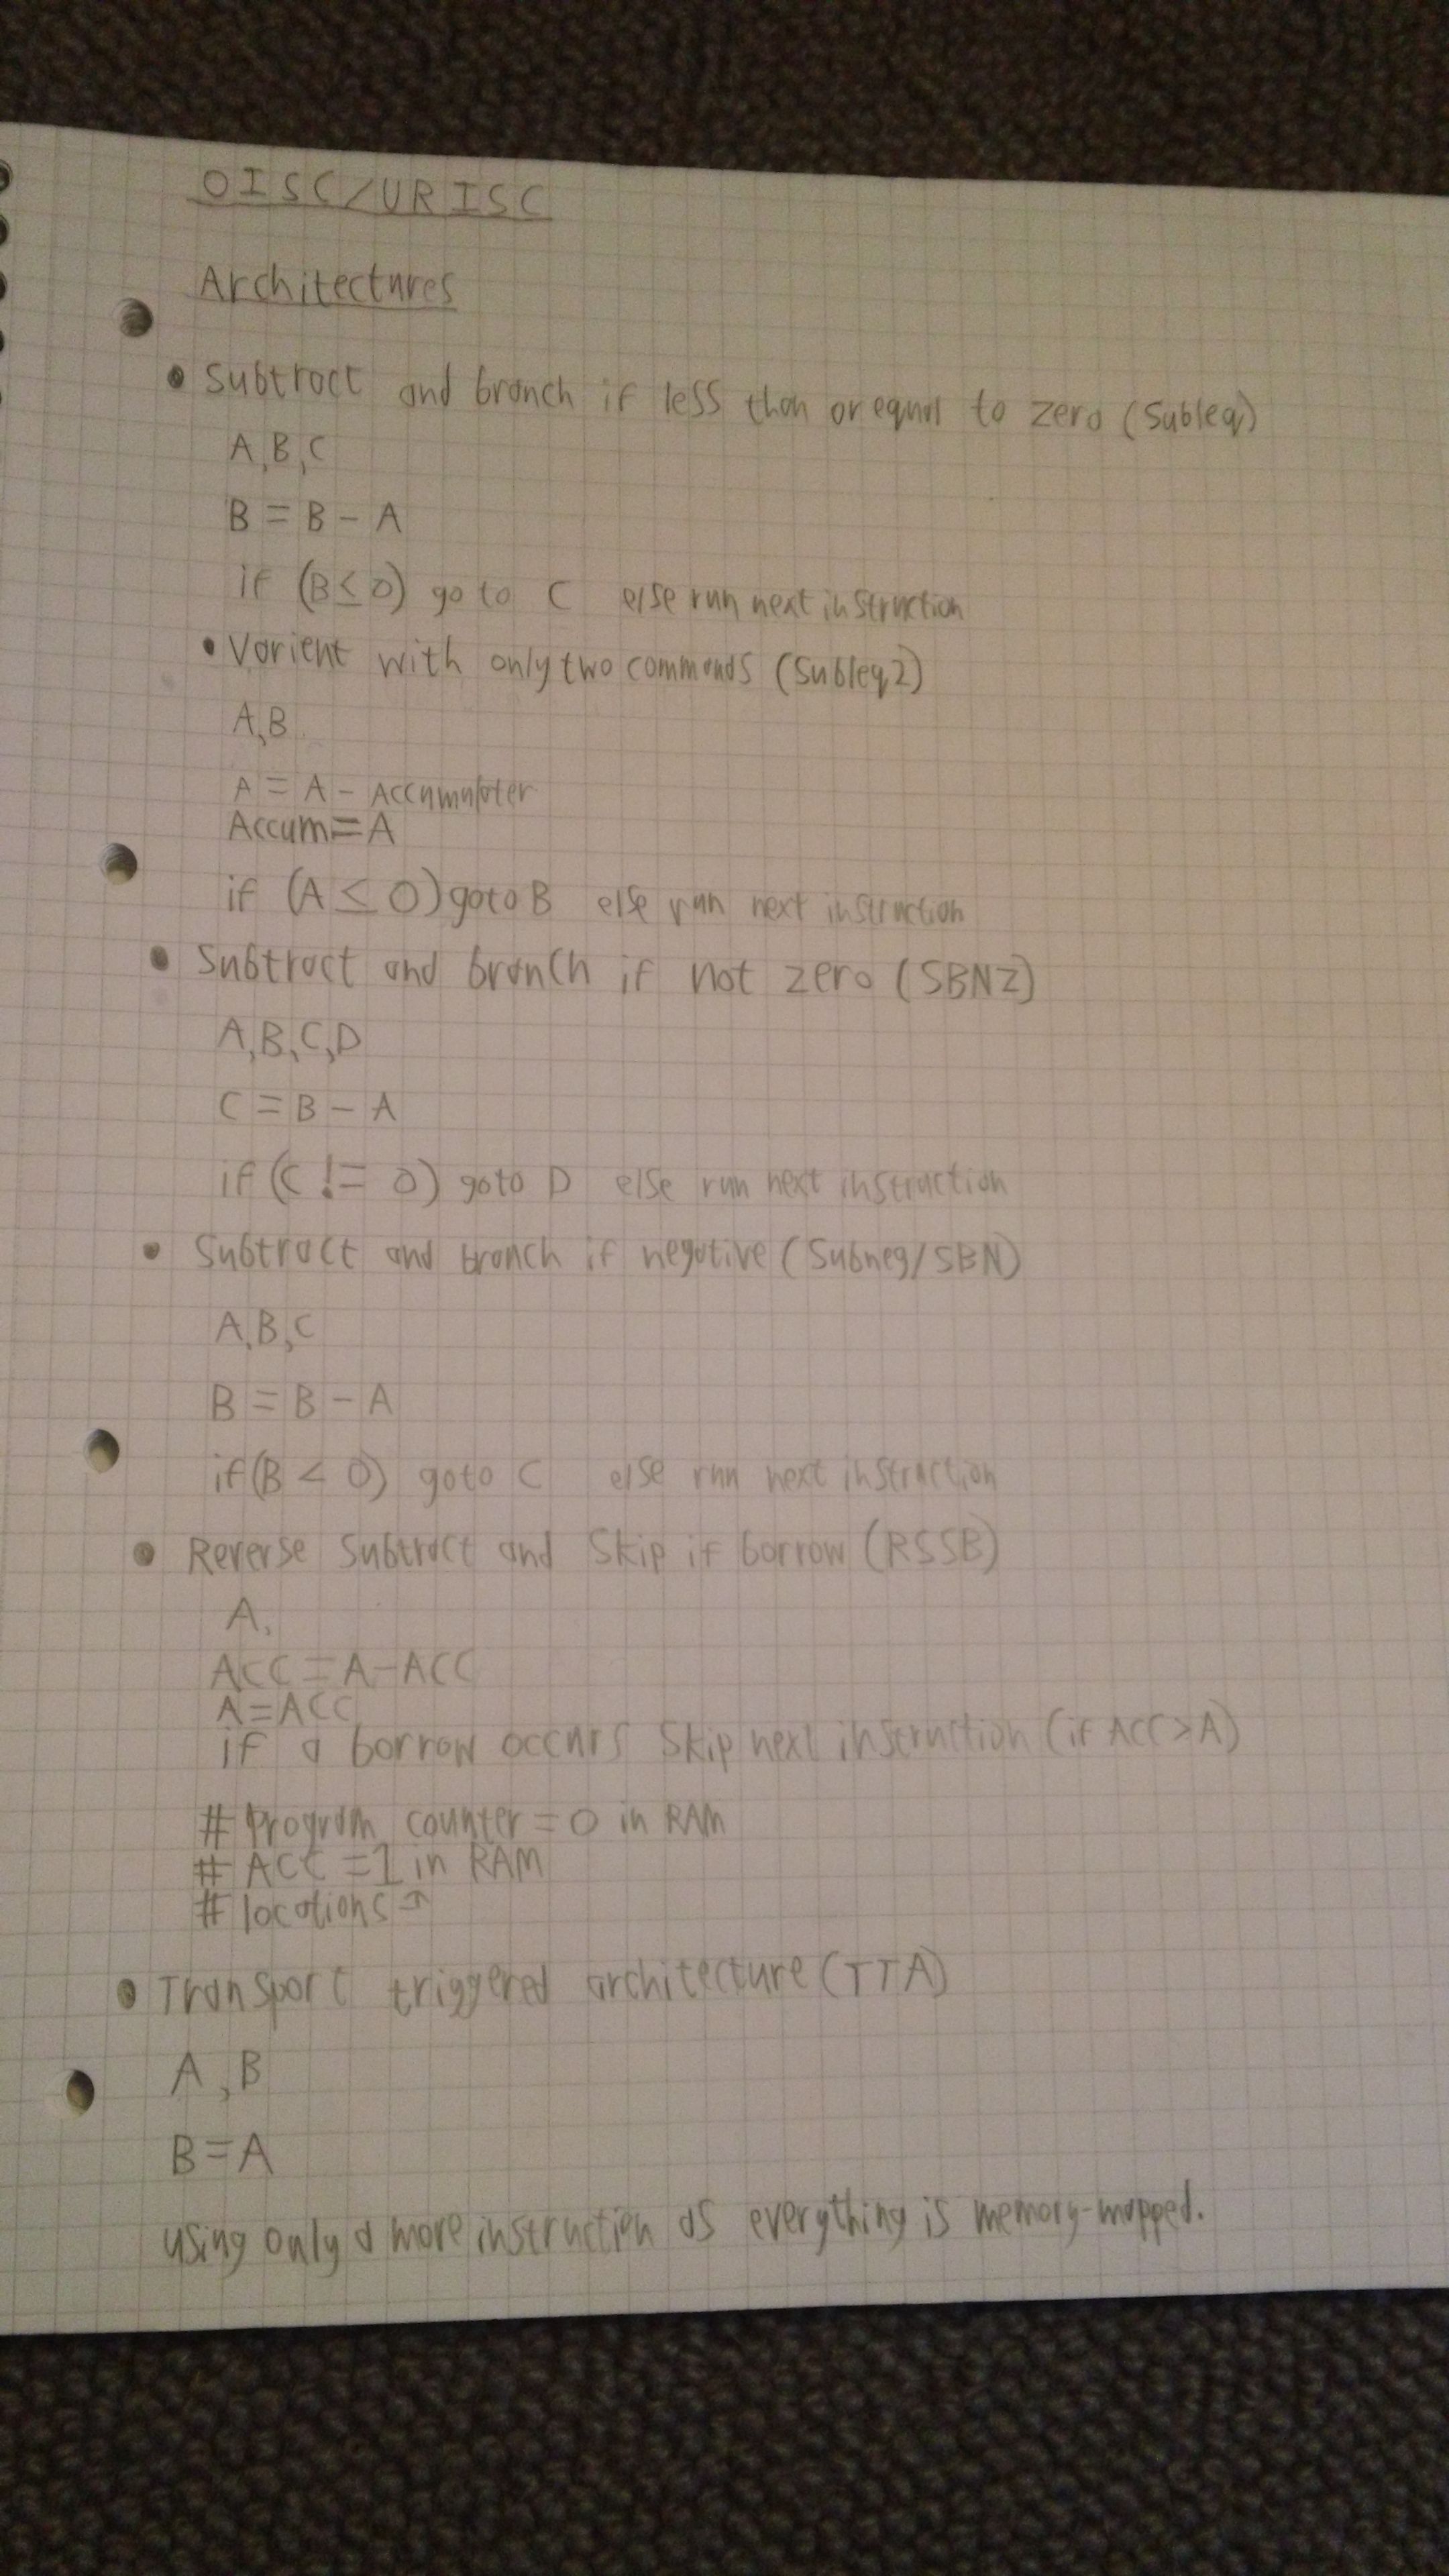 OISC/URISC
Architectures
• Subtract and branch if less than or equal to zero (Subleq)
A,B,C
B = B - A
if (B ≤ 0) go to C else run next instruction
• Varient with only two commands (Subleq2)
A,B
A = A - Accumulater
Accum=A
if (A ≤ 0) goto B else run next instruction
• Subtract and branch if not zero (SBNZ)
A,B,C,D
C = B - A
if (C != 0) goto D else run next instruction
• Subtract and branch if negative (Subneg/SBN)
A,B,C
B = B - A
if (B < 0) goto C else run next instruction
• Reverse Subtract and Skip if borrow (RSSB)
A,
ACC = A-ACC
A=ACC
if a borrow occurs Skip next instruction (if ACC>A)
# Program counter = 0 in RAM
# ACC = 1 in RAM
# locations ↑
• Transport triggered architecture (TTA)
A,B
B=A
using only a more instruction as everything is memory-mapped.